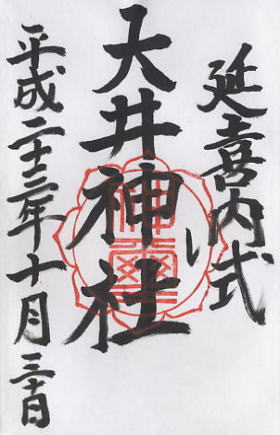 延喜内式
大井神社
平成二十三年十月三十日